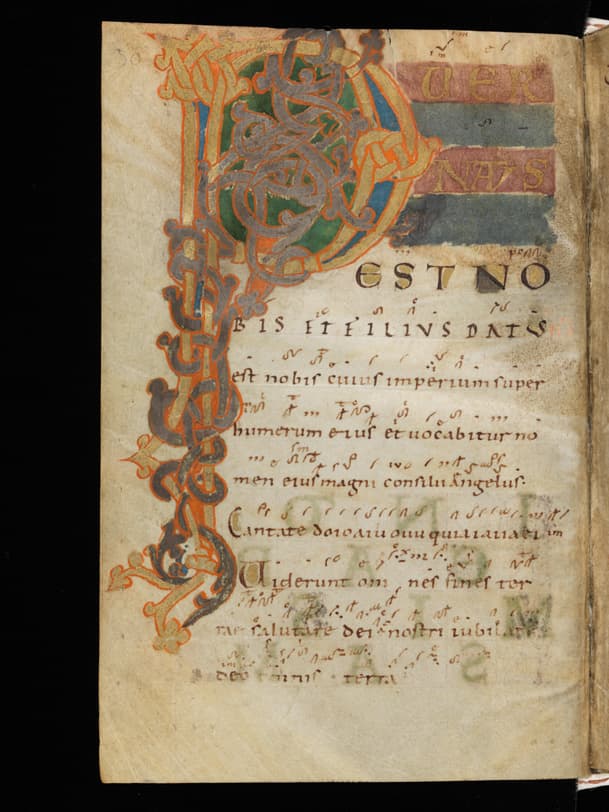 30
PUER
NATS
EST NO
BIS ET FILIVS DATVS
est nobis cuius imperium super
humerum eius et uocabitur no
men eius magni consilii angelus.
Cantate
Uiderunt om nes fines ter
rae salutare dei nostri iubilate
deo omnis terra